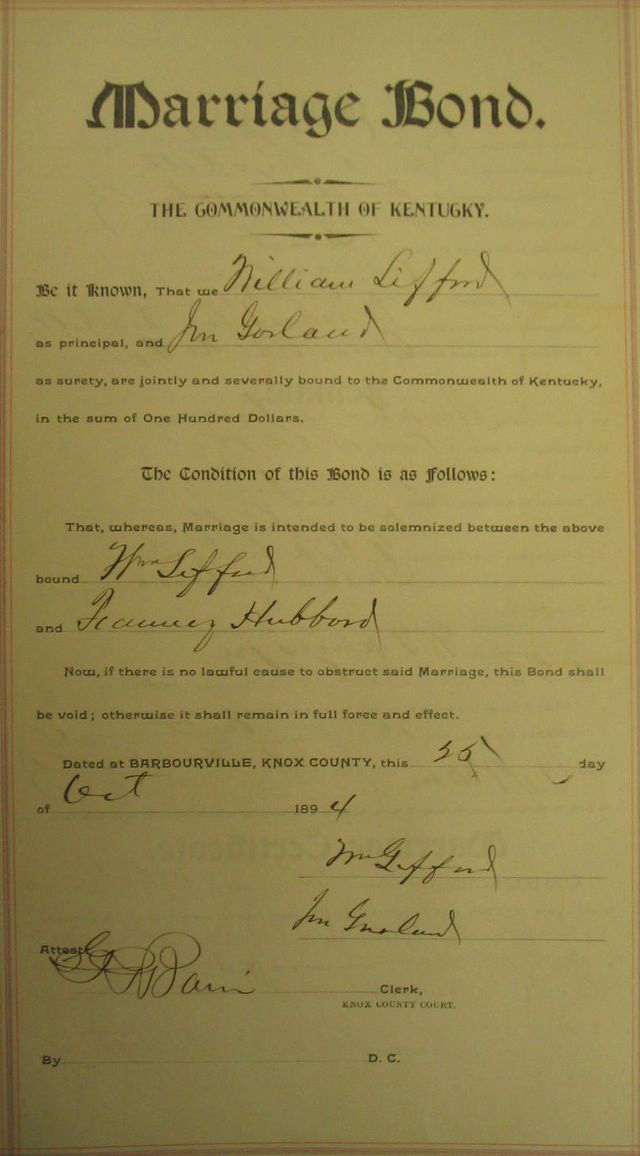 Marriage Bond.
THE COMMONWEALTH OF KENTUCKY.
Be it Known, That we William Lefford
as principal, and Jno Gorland
as surety, are jointly and severally bound to the Commonwealth of Kentucky,
in the sum of One Hundred Dollars.
The Condition of this Bond is as follows:
That, whereas, Marriage is intended to be solemnized between the above
bound Wm Lefford
and Hubbord
Now, if there is no lawful cause to obstruct said Marriage, this Bond shall
be void; otherwise it shall remain in full force and effect.
Dated at BARBOURVILLE, KNOX COUNTY, this 25 day
of Oct 1894
Wm Lefford
Jno
Attest
Clerk,
KNOX COUNTY COURT.
By D. C.